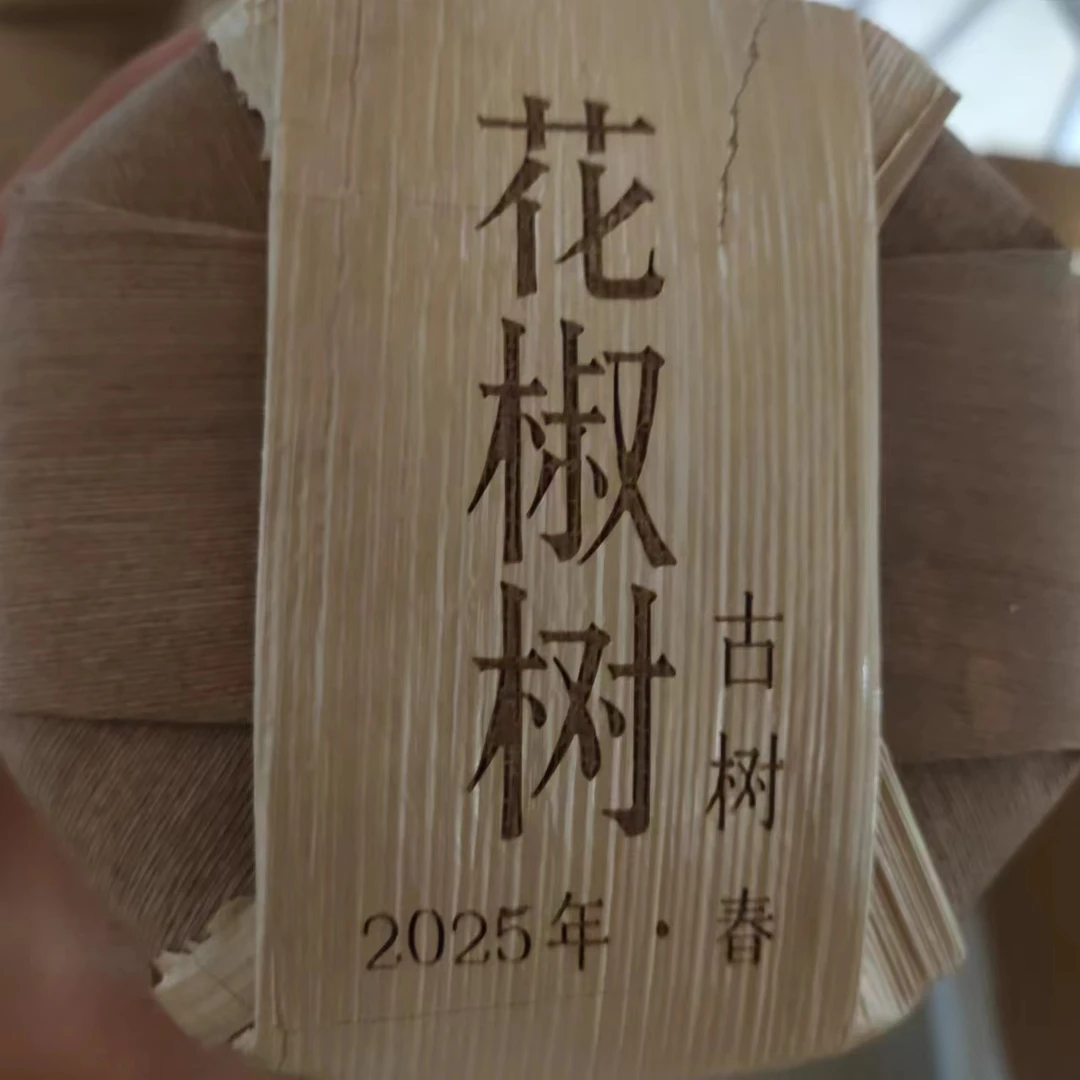 花椒树
古树
2025年·春